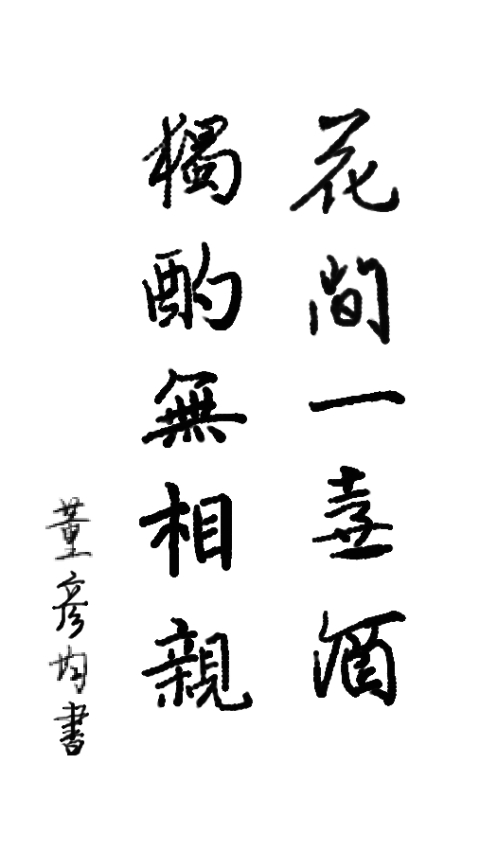 花間一壺酒
獨酌無相親
董彥均書